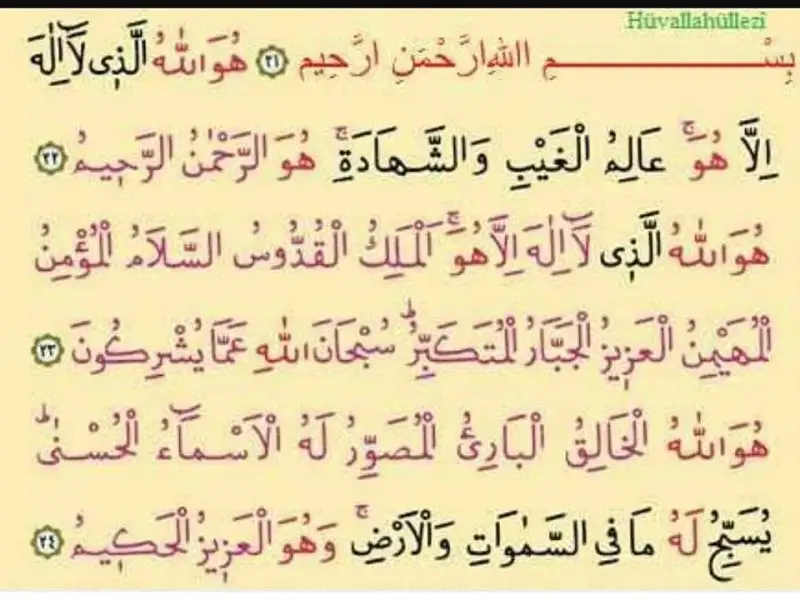 Hüvallahüllezî
بِسْــــــــــــــمِ اللّٰهِ الرَّحْمٰنِ الرَّحِيمِ ﴿٢١﴾ هُوَ اللّٰهُ الَّذٖى لَٓا اِلٰهَ
اِلَّا هُوَۚ عَالِمُ الْغَيْبِ وَالشَّهَادَةِۚ هُوَ الرَّحْمٰنُ الرَّحٖيمُ ﴿٢٢﴾
هُوَ اللّٰهُ الَّذٖى لَٓا اِلٰهَ اِلَّا هُوَۚ اَلْمَلِكُ الْقُدُّوسُ السَّلَامُ الْمُؤْمِنُ
الْمُهَيْمِنُ الْعَزٖيزُ الْجَبَّارُ الْمُتَكَبِّرُؕ سُبْحَانَ اللّٰهِ عَمَّا يُشْرِكُونَ ﴿٢٣﴾
هُوَ اللّٰهُ الْخَالِقُ الْبَارِئُ الْمُصَوِّرُ لَهُ الْاَسْمَٓاءُ الْحُسْنٰىؕ
يُسَبِّحُ لَهُ مَا فِى السَّمٰوَاتِ وَالْاَرْضِۚ وَهُوَ الْعَزٖيزُ الْحَكٖيمُ ﴿٢٤﴾